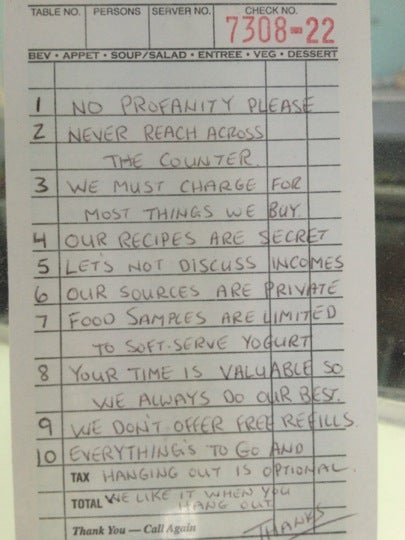 TABLE NO. PERSONS SERVER NO. CHECK NO.
7308-22
BEV • APPET • SOUP/SALAD • ENTREE • VEG • DESSERT
1 NO PROFANITY PLEASE
2 NEVER REACH ACROSS
THE COUNTER.
3 WE MUST CHARGE FOR
MOST THINGS WE BUY.
4 OUR RECIPES ARE SECRET
5 LET'S NOT DISCUSS INCOMES
6 OUR SOURCES ARE PRIVATE
7 FOOD SAMPLES ARE LIMITED
TO SOFT-SERVE YOGURT
8 YOUR TIME IS VALUABLE SO
WE ALWAYS DO OUR BEST.
9 WE DON'T OFFER FREE REFILLS
10 EVERYTHING'S TO GO AND
TAX HANGING OUT IS OPTIONAL.
TOTAL WE LIKE IT WHEN YOU
HANG OUT
Thank You — Call Again THANKS